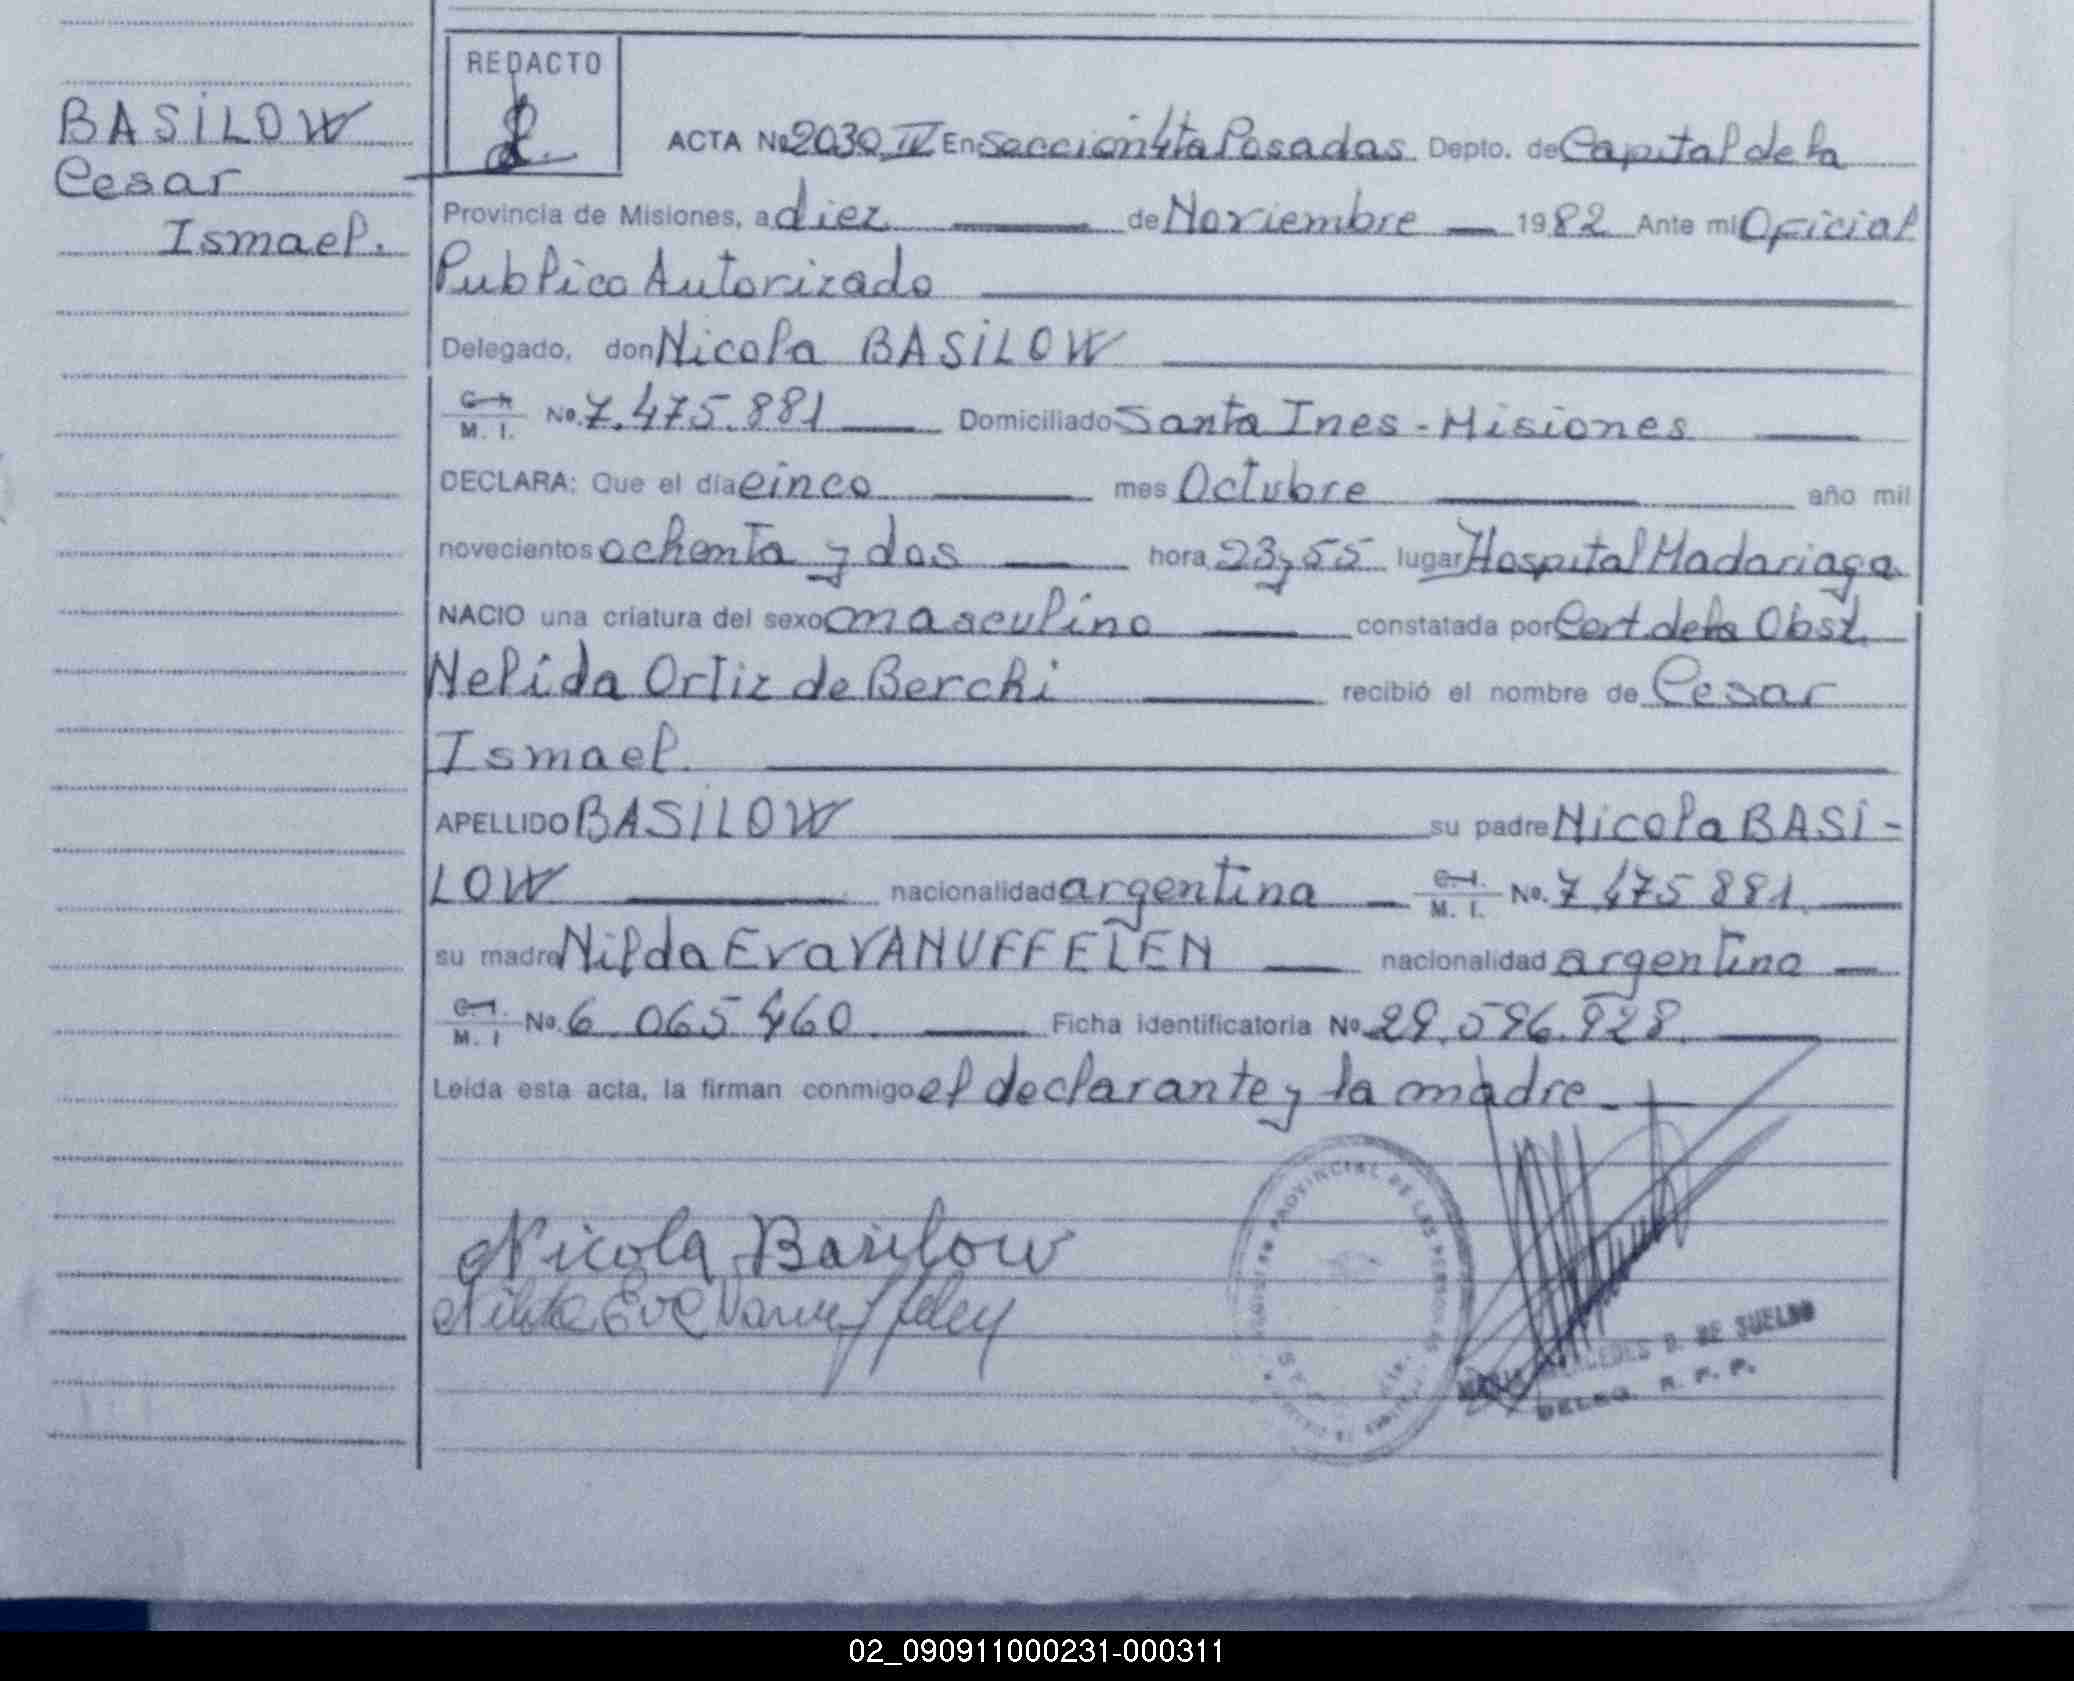 BASILOW
Cesar
Ismael.
REDACTO
ACTA No 2030 IV En Seccion 4ta Posadas Depto. de Capital de la
Provincia de Misiones, a diez de Noviembre 1982 Ante mi Oficial
Publico Autorizado
Delegado, don Nicola BASILOW
C. I. M. I. No. 7.475.881 Domiciliado Santa Ines - Misiones
DECLARA: Que el día cinco mes Octubre año mil
novecientos ochenta y dos hora 23y55 lugar Hospital Madariaga
NACIO una criatura del sexo masculino constatada por Cert. de la Obst.
Nelida Ortiz de Berchi recibió el nombre de Cesar
Ismael.
APELLIDO BASILOW su padre Nicola BASI-
LOW nacionalidad argentina C. I. M. I. No. 7.475 881.
su madre Nilda Eva VANUFFELEN nacionalidad argentina
C. I. M. I No. 6.065.460. Ficha identificatoria No. 29.596.928.
Leída esta acta, la firman conmigo el declarante y la madre.
Nicola Basilow
Nilda Eva Vanuffelen
PROVINCIAL DE LAS PERSONAS
MERCEDES D. DE SUELDO
DELEG. R. P. P.
02_090911000231-000311